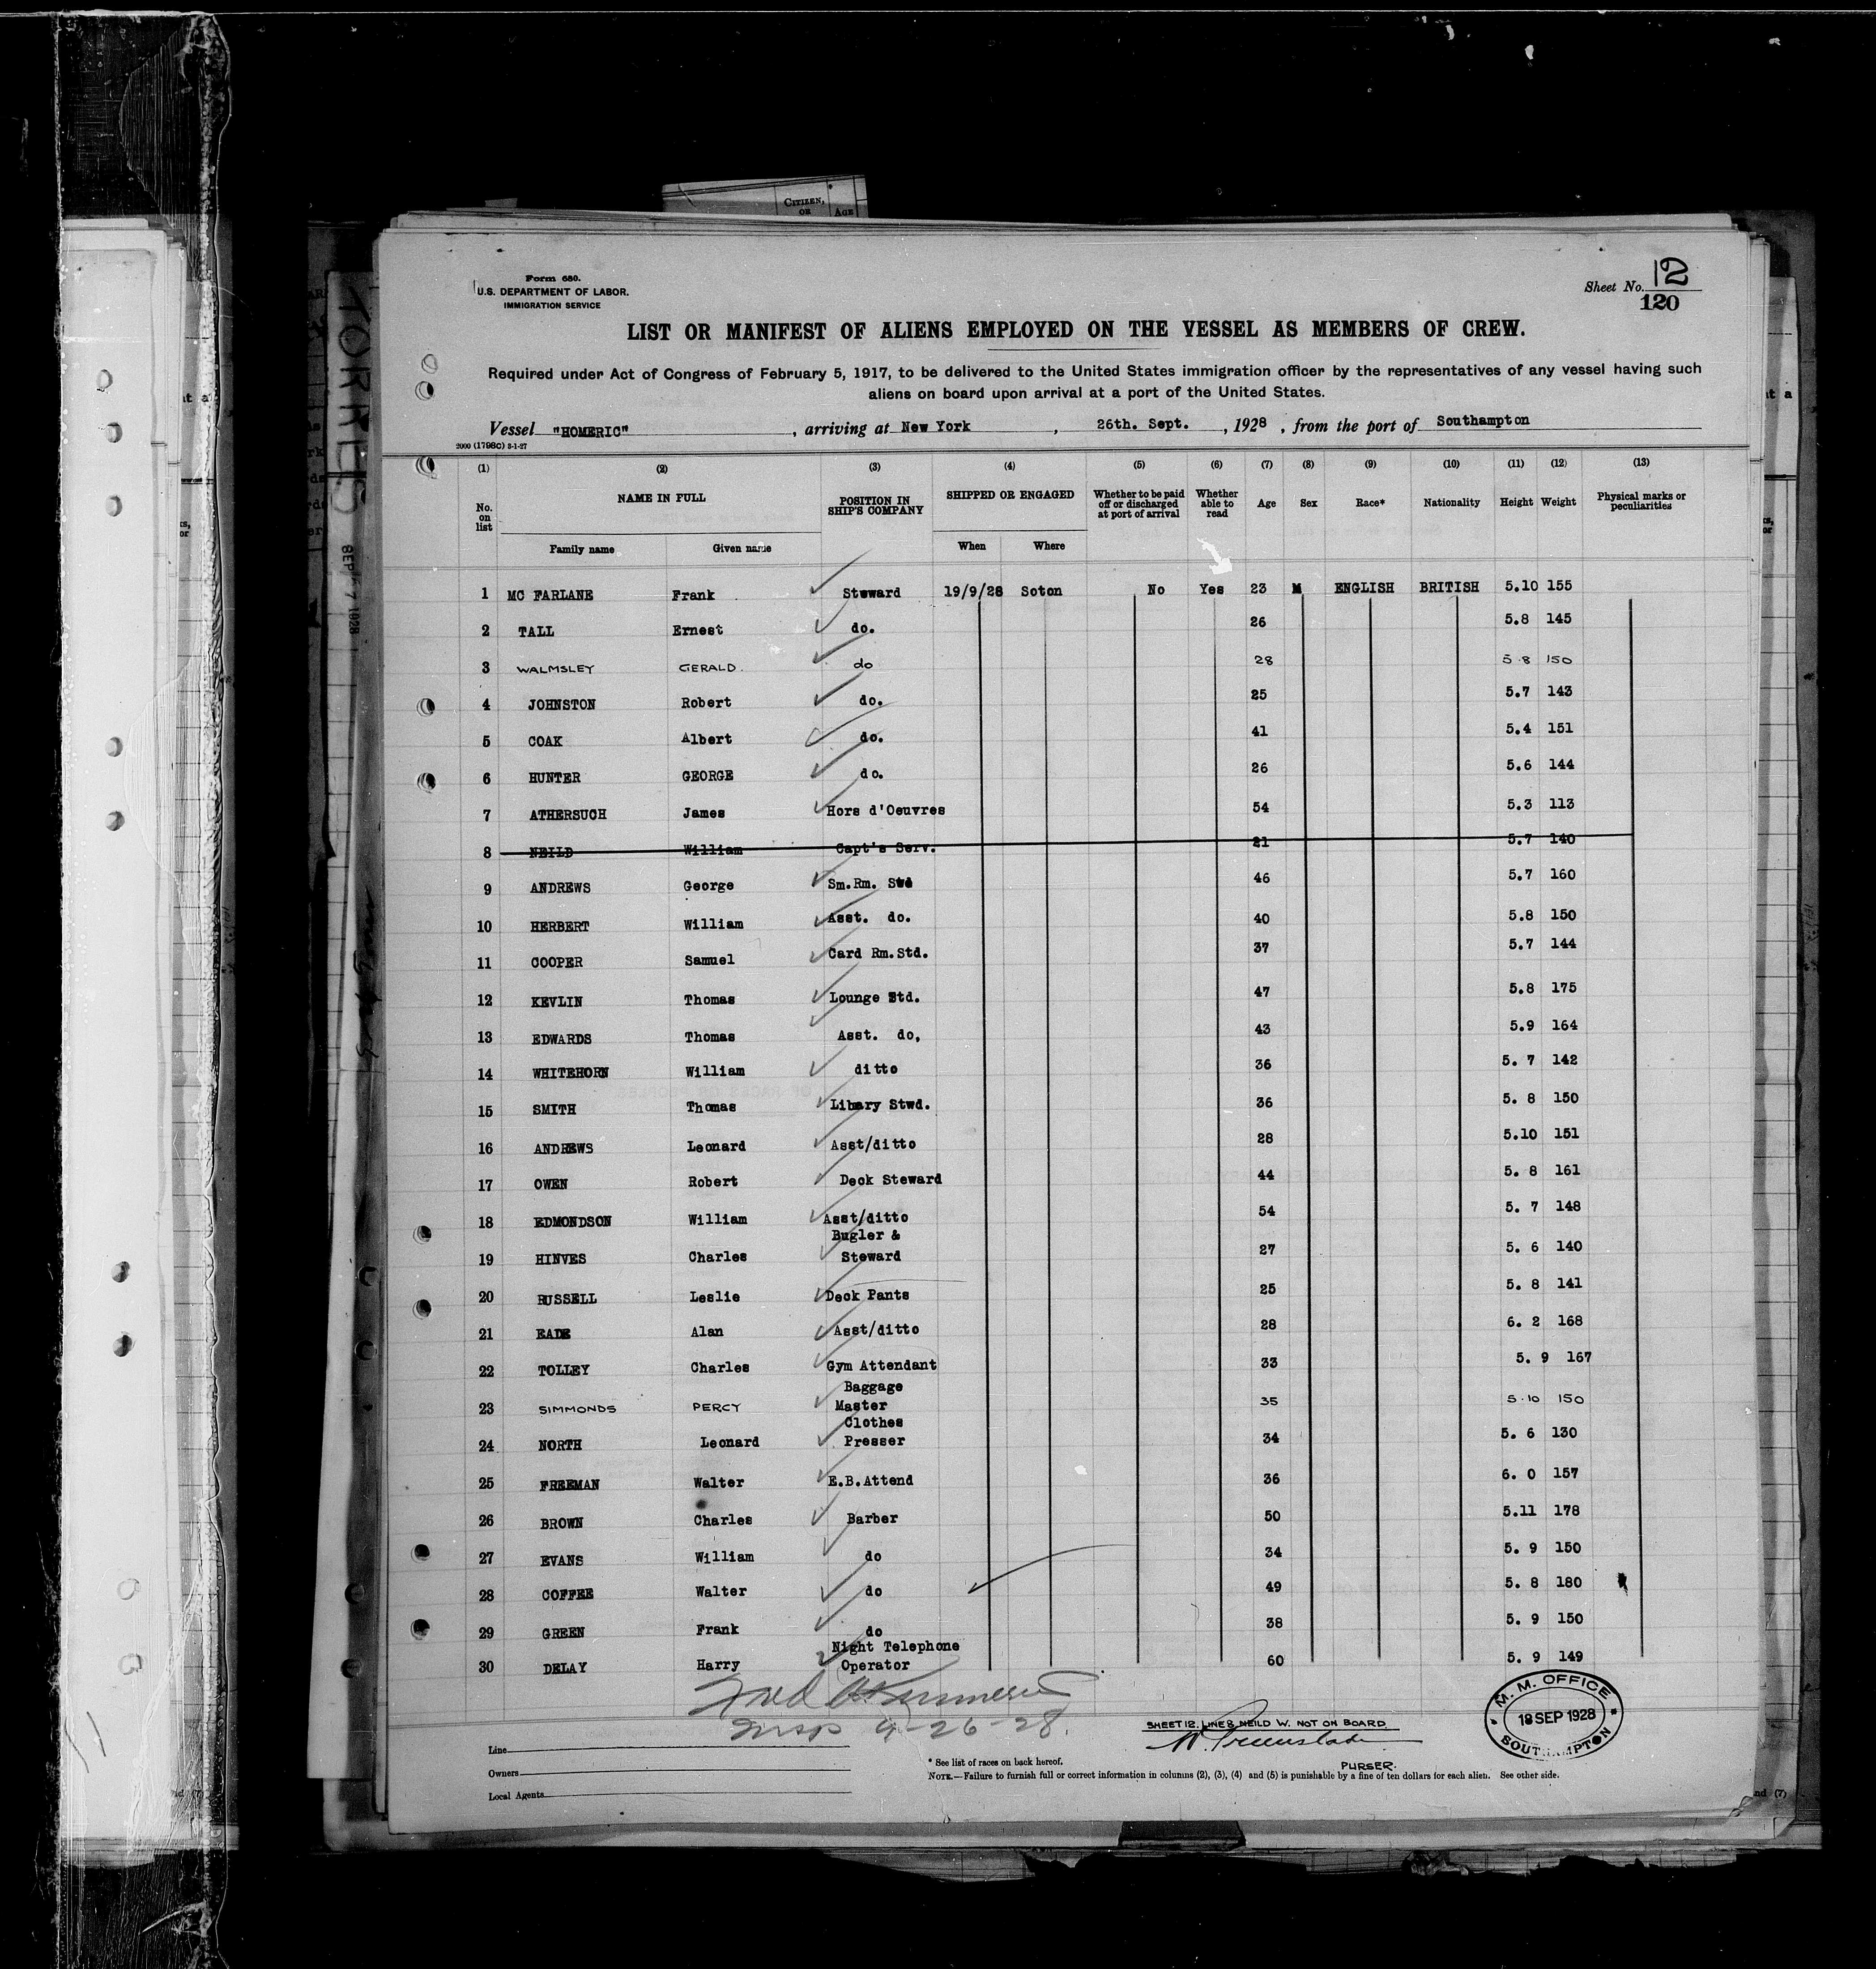 CITIZEN, OR AGE
TORRES
SEP 27 1928
Form 680.
U.S. DEPARTMENT OF LABOR.
IMMIGRATION SERVICE
Sheet No. 12
120
LIST OR MANIFEST OF ALIENS EMPLOYED ON THE VESSEL AS MEMBERS OF CREW.
Required under Act of Congress of February 5, 1917, to be delivered to the United States immigration officer by the representatives of any vessel having such
aliens on board upon arrival at a port of the United States.
Vessel "HOMERIC", arriving at New York, 26th. Sept., 1928, from the port of Southampton
2000 (1798C) 3-1-27
(1) (2) (3) (4) (5) (6) (7) (8) (9) (10) (11) (12) (13)
No. on list NAME IN FULL POSITION IN SHIP'S COMPANY SHIPPED OR ENGAGED Whether to be paid off or discharged at port of arrival Whether able to read Age Sex Race* Nationality Height Weight Physical marks or peculiarities
Family name Given name When Where
1 MC FARLANE Frank Steward 19/9/28 Soton No Yes 23 M ENGLISH BRITISH 5.10 155
2 TALL Ernest do. 26 5.8 145
3 WALMSLEY GERALD. do 28 5.8 150
4 JOHNSTON Robert do. 25 5.7 143
5 COAK Albert do. 41 5.4 151
6 HUNTER GEORGE do. 26 5.6 144
7 ATHERSUCH James Hors d'Oeuvres 54 5.3 113
8 NEILD William Capt's Serv. 21 5.7 140
9 ANDREWS George Sm.Rm. Std 46 5.7 160
10 HERBERT William Asst. do. 40 5.8 150
11 COOPER Samuel Card Rm.Std. 37 5.7 144
12 KEVLIN Thomas Lounge Std. 47 5.8 175
13 EDWARDS Thomas Asst. do, 43 5.9 164
14 WHITEHORN William ditto 36 5. 7 142
15 SMITH Thomas Library Stwd. 36 5. 8 150
16 ANDREWS Leonard Asst/ditto 28 5.10 151
17 OWEN Robert Deck Steward 44 5. 8 161
18 EDMONDSON William Asst/ditto 54 5. 7 148
19 HINVES Charles Bugler & Steward 27 5. 6 140
20 RUSSELL Leslie Deck Pants 25 5. 8 141
21 EADE Alan Asst/ditto 28 6. 2 168
22 TOLLEY Charles Gym Attendant 33 5. 9 167
23 SIMMONDS PERCY Baggage Master 35 5.10 150
24 NORTH Leonard Clothes Presser 34 5. 6 130
25 FREEMAN Walter E.B.Attend 36 6. 0 157
26 BROWN Charles Barber 50 5.11 178
27 EVANS William do 34 5. 9 150
28 COFFEE Walter do 49 5. 8 180
29 GREEN Frank do 38 5. 9 150
30 DELAY Harry Night Telephone Operator 60 5. 9 149
Insp 9-26-28.
SHEET 12. LINE 8 NEILD W. NOT ON BOARD.
PURSER.
M. M. OFFICE
18 SEP 1928
SOUTHAMPTON
Line
Owners
Local Agents
* See list of races on back hereof.
NOTE.—Failure to furnish full or correct information in columns (2), (3), (4) and (5) is punishable by a fine of ten dollars for each alien. See other side.
nd (7)